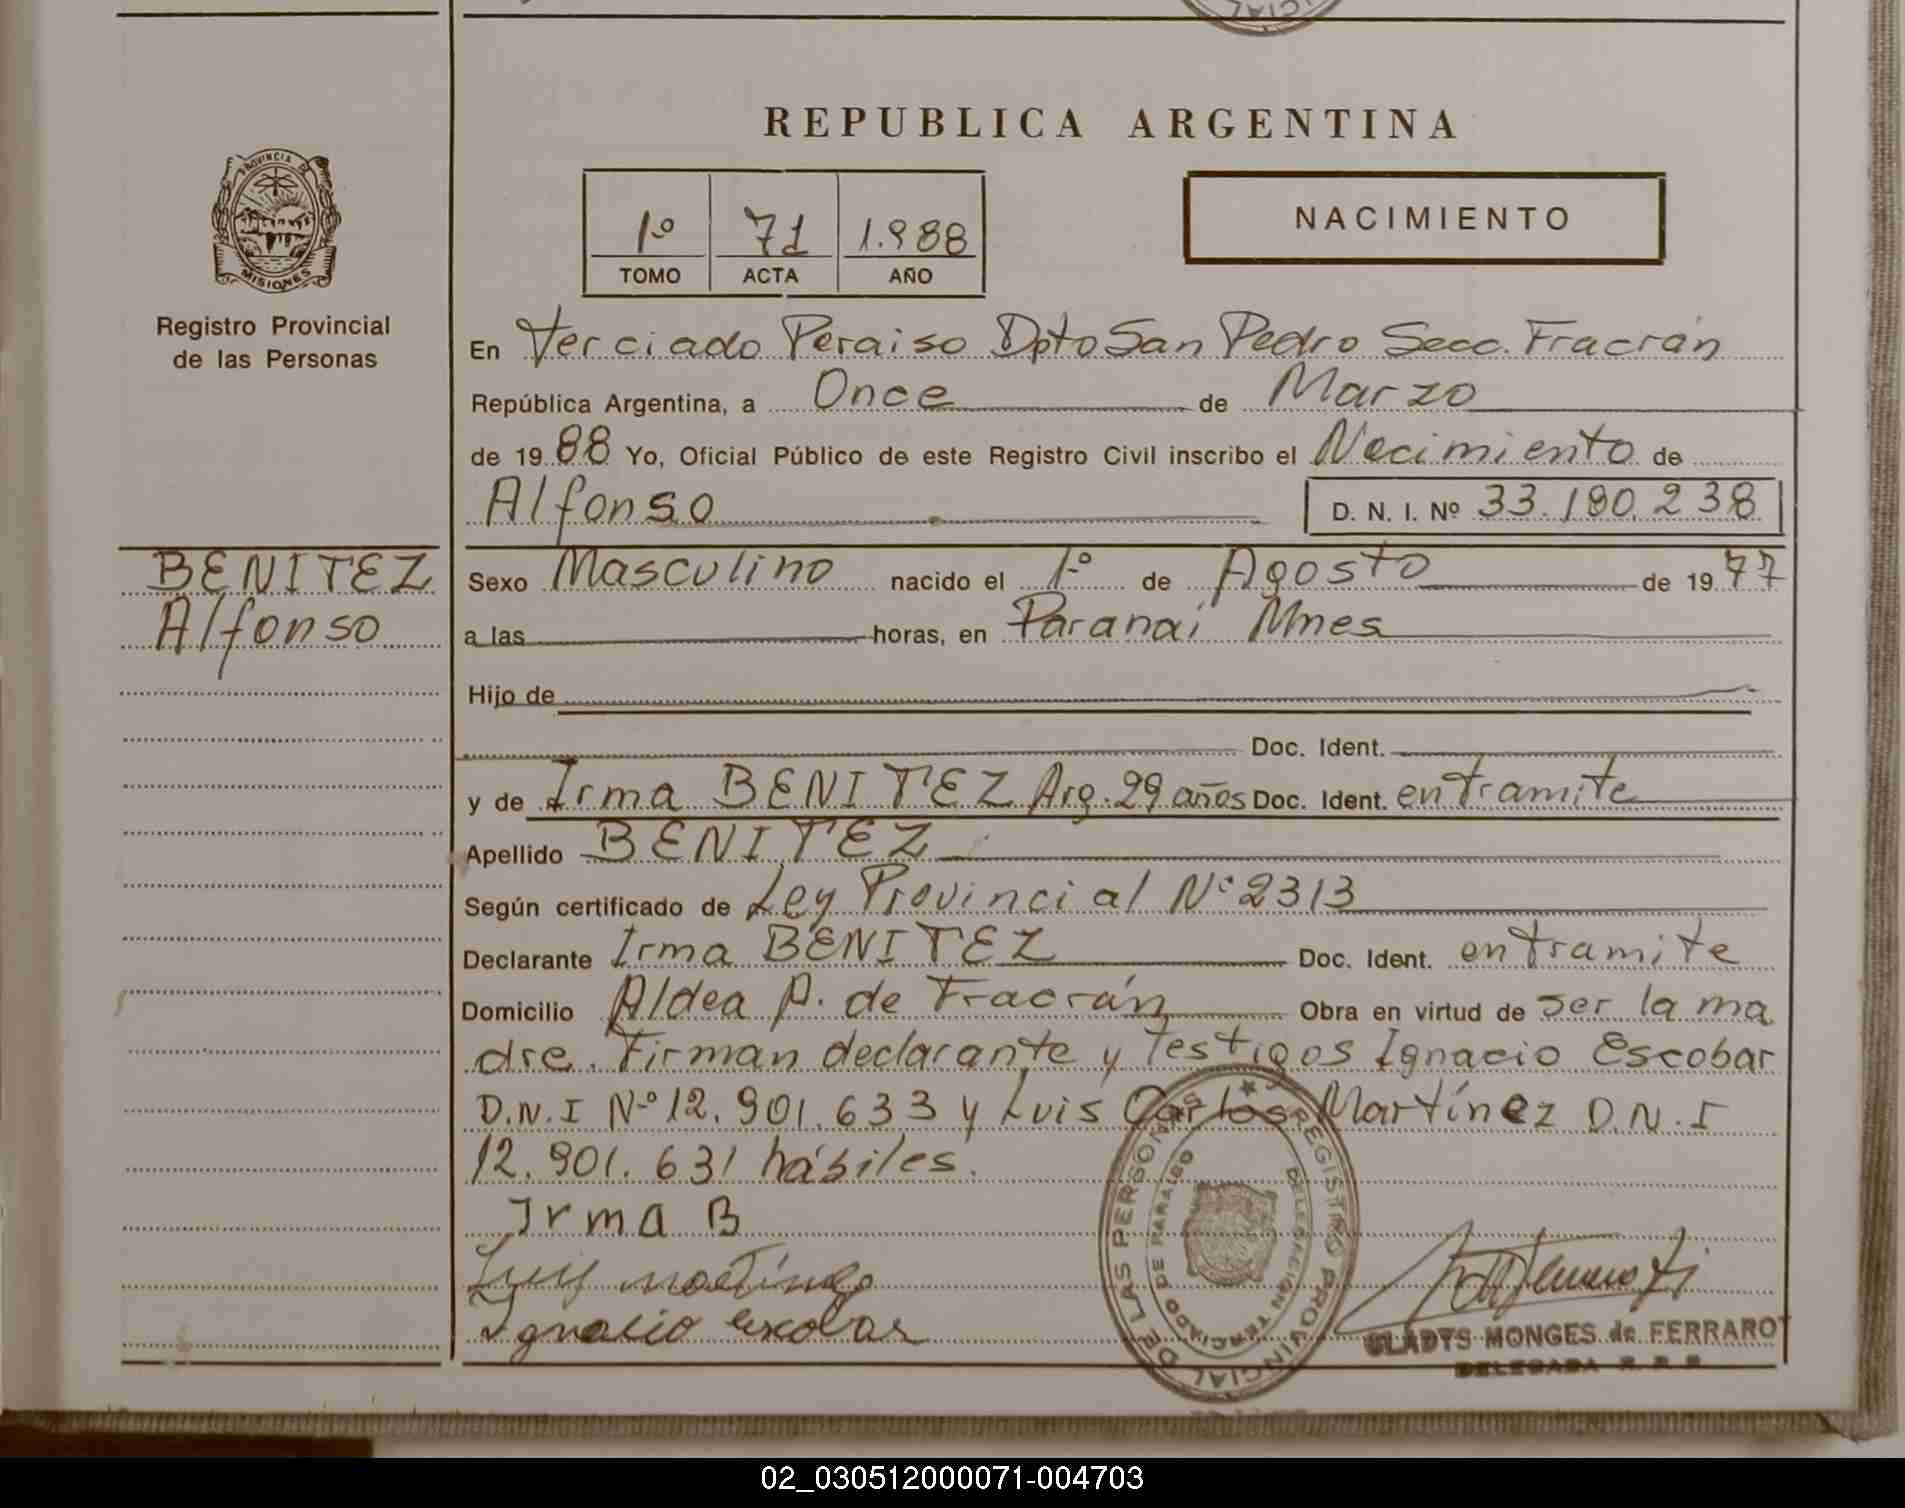 REPUBLICA ARGENTINA
PROVINCIA D
MISIONES
Registro Provincial
de las Personas
1º 71 1.988
TOMO ACTA AÑO
NACIMIENTO
En Terciado Peraiso Dpto San Pedro Secc. Fracrán
República Argentina, a Once de Marzo
de 1988 Yo, Oficial Público de este Registro Civil inscribo el Nacimiento de
Alfonso D. N. I. Nº 33.180.238
BENITEZ
Alfonso
Sexo Masculino nacido el 1º de Agosto de 1977
a las horas, en Paranai Mnes
Hijo de
Doc. Ident.
y de Irma BENITEZ Arg. 29 años Doc. Ident. en tramite
Apellido BENITEZ
Según certificado de Ley Provincial Nº 2313
Declarante Irma BENITEZ Doc. Ident. en tramite
Domicilio Aldea A. de Fracrán Obra en virtud de ser la ma
dre. Firman declarante y Testigos Ignacio Escobar
D.N.I Nº 12.901.633 y Luis Carlos Martínez D.N.I
12.901.631 hábiles.
Irma B
Luis martínes
Ignacio escobar
REGISTRO PROVINCIAL DE LAS PERSONAS
DELEGACION TERCIADO DE PARAISO
GLADYS MONGES de FERRAROT
DELEGADA R. P. P.
02_030512000071-004703